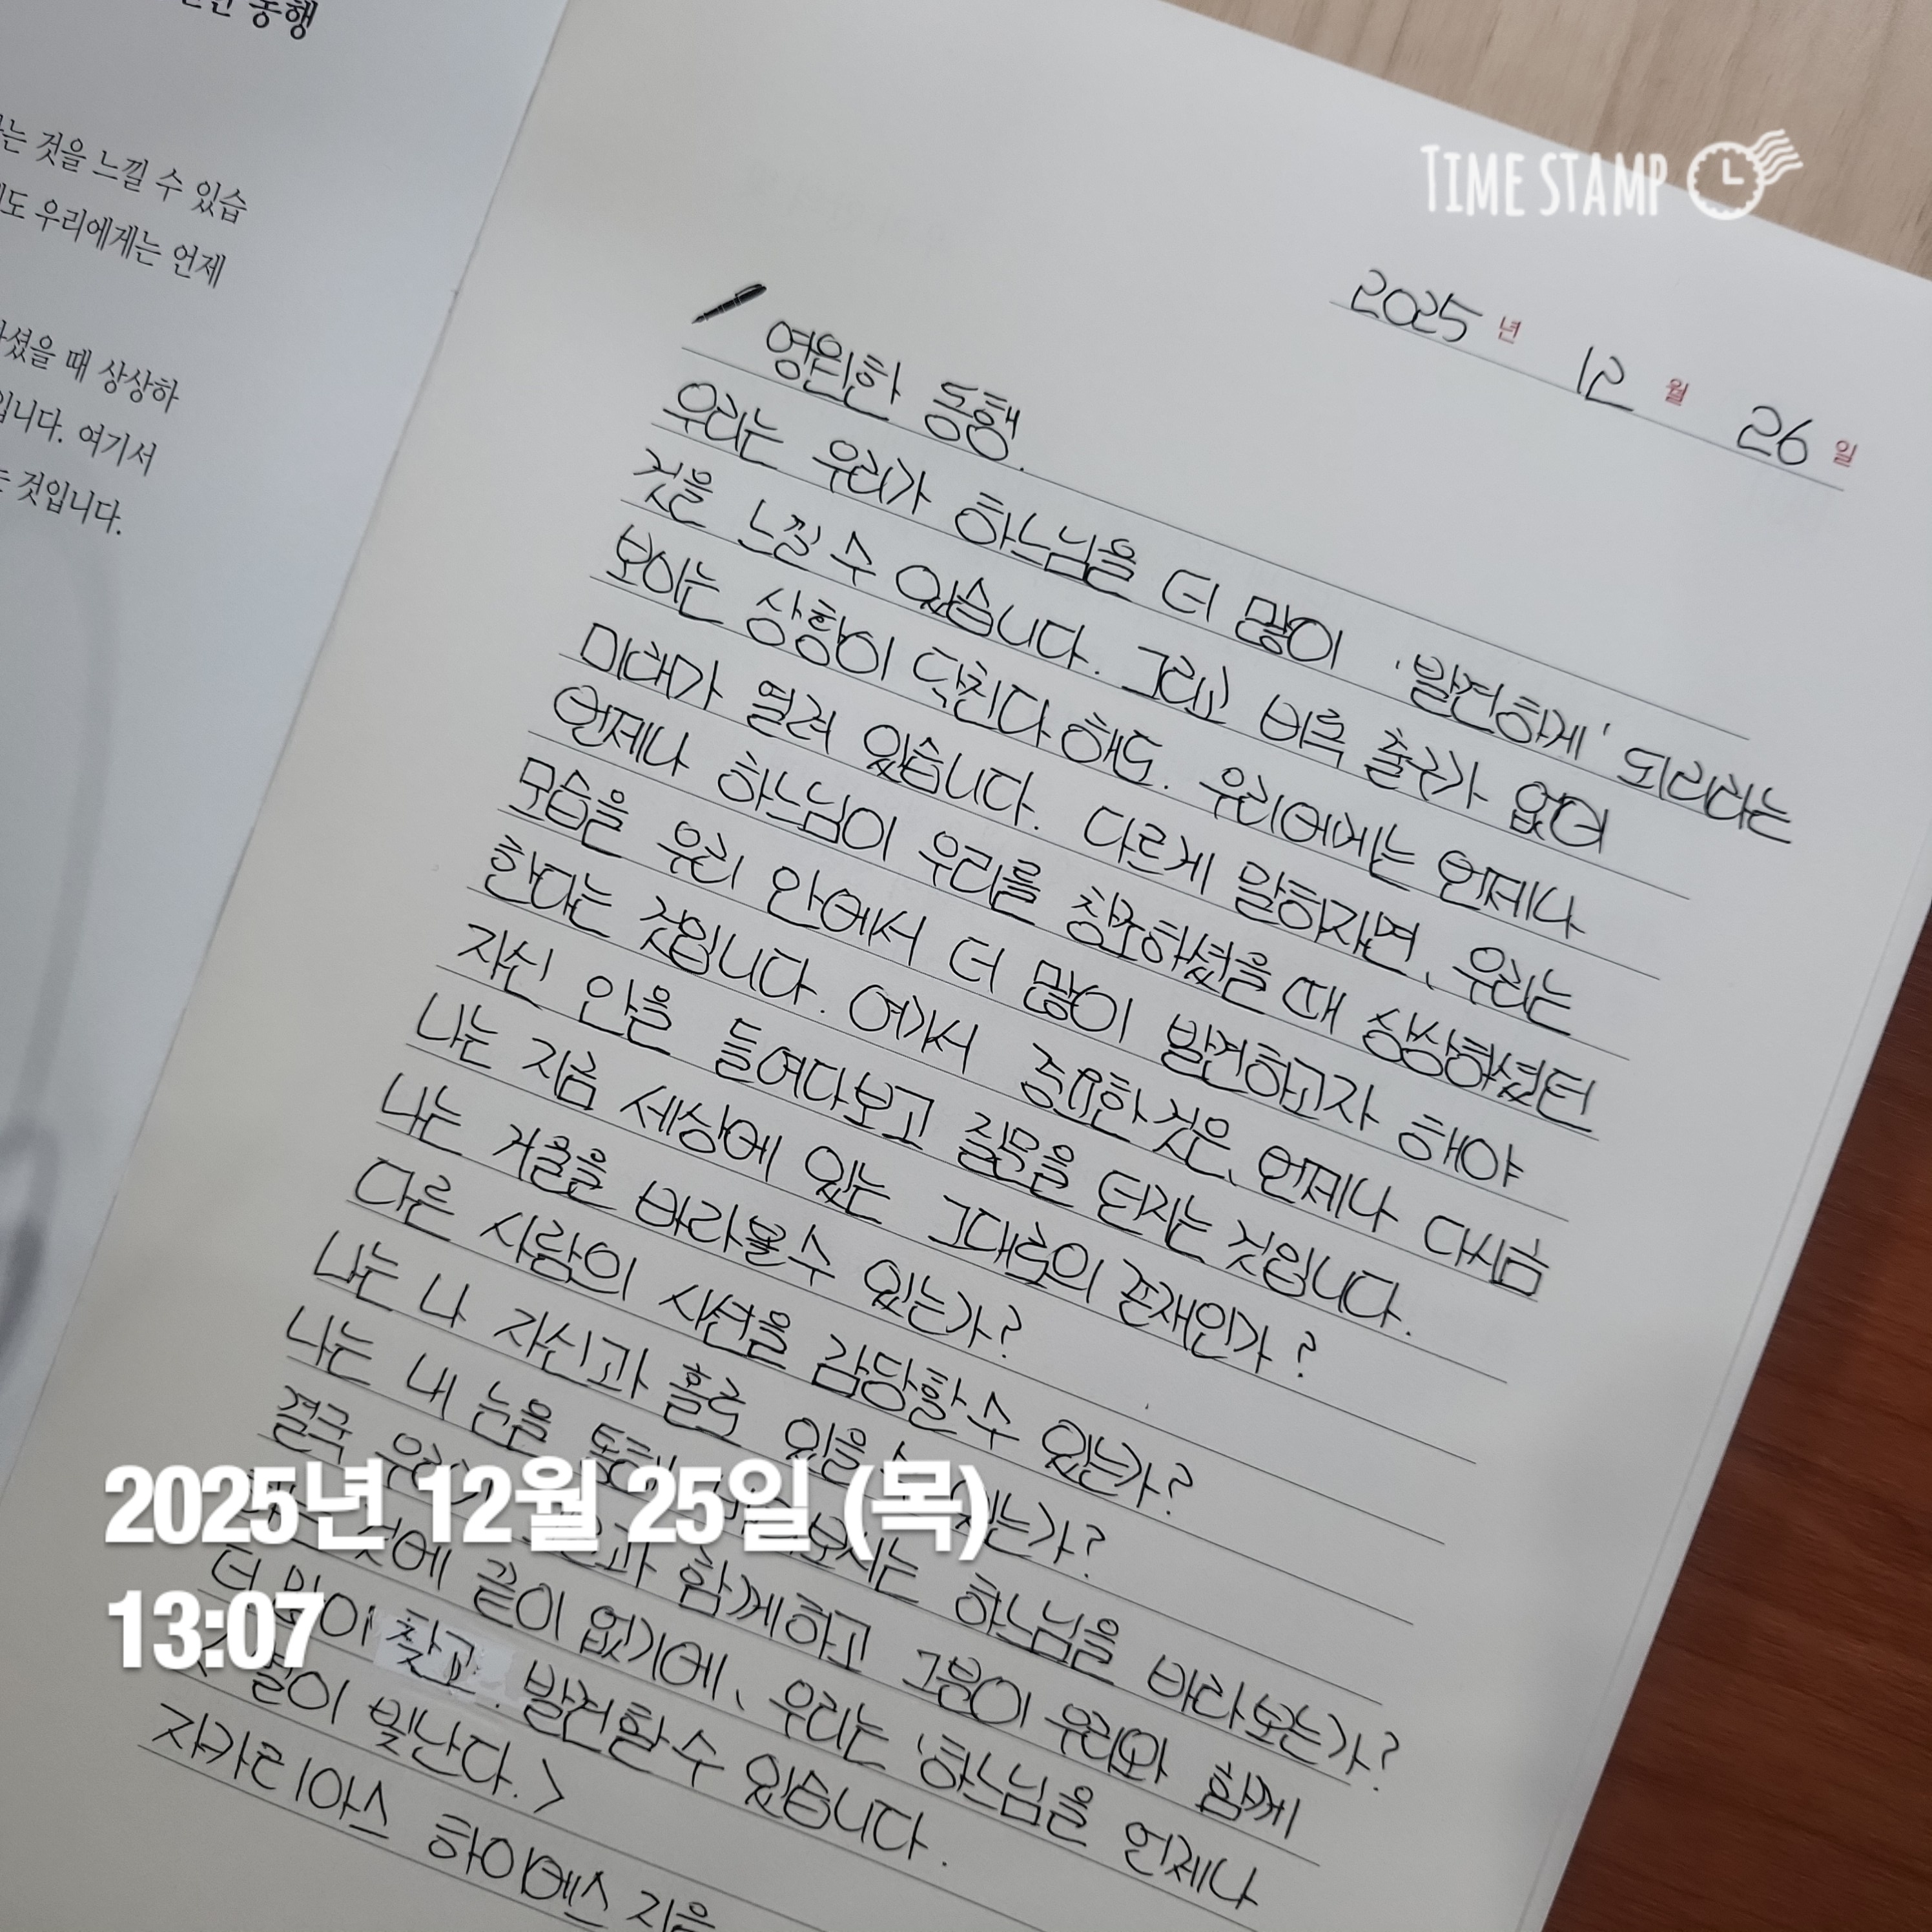 동행
는 것을 느낄 수 있습
도 우리에게는 언제
셨을 때 상상하
입니다. 여기서
것입니다.
TIME STAMP
2025년 12월 26일
영원한 동행.
우리는 우리가 하느님을 더 많이 '발견하게' 되리라는
것을 느낄 수 있습니다. 그리고 비록 출구가 없어
보이는 상황이 닥친다 해도. 우리에게는 언제나
미래가 열려 있습니다. 다르게 말하자면, 우리는
언제나 하느님이 우리를 창조하셨을 때 상상하셨던
모습을 우리 안에서 더 많이 발견하고자 해야
한다는 것입니다. 여기서 중요한 것은, 언제나 다시금
자신 안을 들여다보고 질문을 던지는 것입니다.
나는 지금 세상에 있는 그대로의 존재인가?
나는 거울을 바라볼 수 있는가?
다른 사람의 시선을 감당할 수 있는가?
나는 나 자신과 홀로 있을 수 있는가?
나는 내 눈을 통해 보시는 하느님을 바라보는가?
결국 함께하고 그분이 우리와 함께
것에 끝이 없기에, 우리는 '하느님을 언제나
더 많이 찾고. 발견할 수 있습니다.
별이 빛난다.>
자카리아스 하이예스 지음
2025년 12월 25일 (목)
13:07